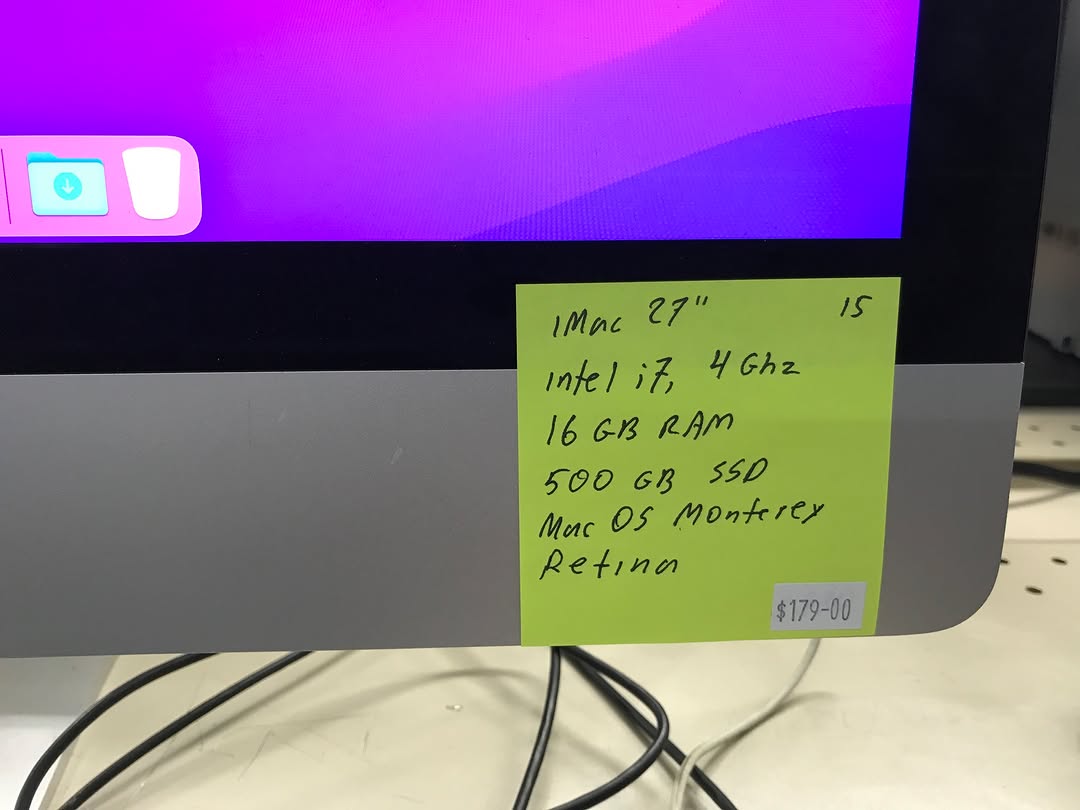 iMac 27" 15
intel i7, 4 Ghz
16 GB RAM
500 GB SSD
Mac OS Monterey
Retina
$179-00